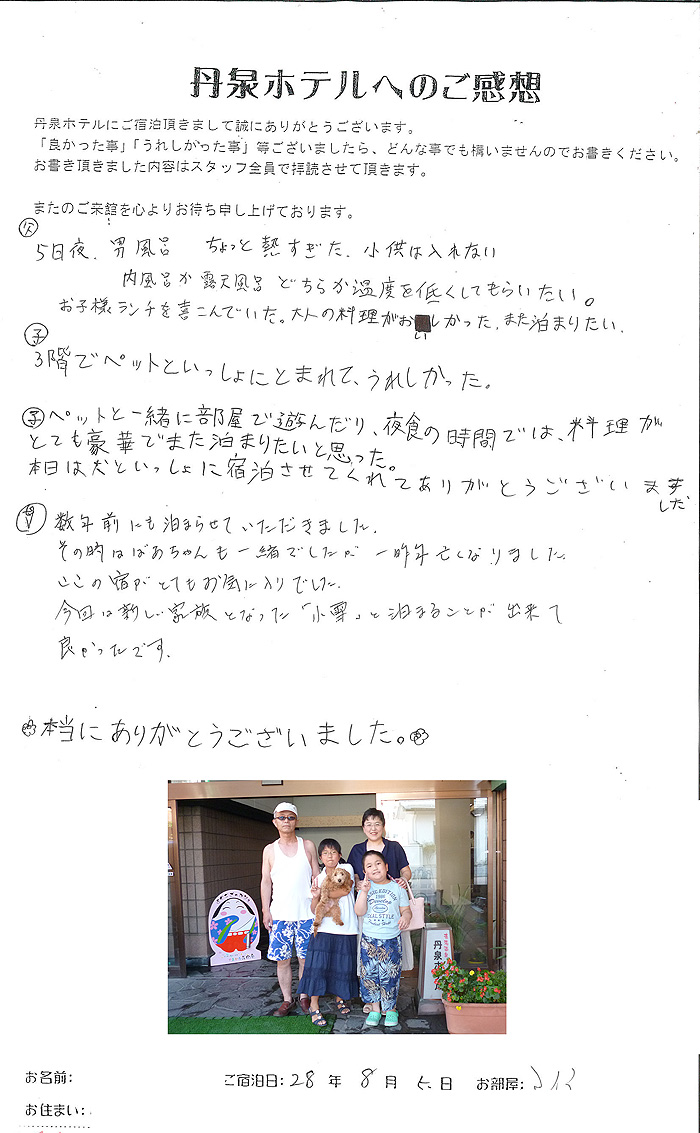 丹泉ホテルへのご感想
丹泉ホテルにご宿泊頂きまして誠にありがとうございます。
「良かった事」「うれしかった事」等ございましたら、どんな事でも構いませんのでお書きください。
お書き頂きました内容はスタッフ全員で拝読させて頂きます。
またのご来館を心よりお待ち申し上げております。
父
5日夜、男風呂 ちょっと熱すぎた、小供は入れない
内風呂か露天風呂どちらか温度を低くしてもらいたい。
お子様ランチを喜こんでいた。大人の料理がおいしかった、また泊まりたい、
子
3階でペットといっしょにとまれて、うれしかった。
子 ペットと一緒に部屋で遊んだり、夜食の時間では、料理が
とても豪華でまた泊まりたいと思った。
本日は犬といっしょに宿泊させてくれてありがとうございました
母 数年前にも泊まらせていただきました.
その時はばあちゃんも一緒でしたが 一昨年亡くなりました.
ここの宿がとてもお気に入りでした.
今回は新しい家族となった「小雪」と泊まることが出来て
良かったです.
本当にありがとうございました。
丹泉ホテル
お名前:
ご宿泊日: 28年 8月 5日 お部屋:
お住まい: